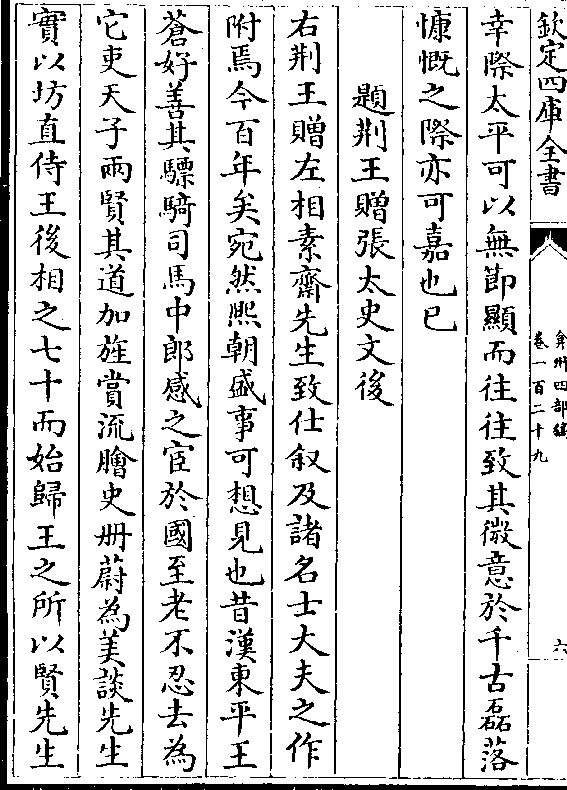 欽定四庫全書
弇州四部稿
卷一百二十九
六
幸際太平可以無節顯而往往致其微意於千古磊落
慷慨之際亦可嘉也已
題荆王贈張太史文後
右荆王贈左相素齋先生致仕叙及諸名士大夫之作
附焉今百年矣宛然熈朝盛事可想見也昔漢東平王
蒼好善其驃騎司馬中郎感之宦於國至老不忍去為
它吏天子兩賢其道加旌賞流膾史册蔚為美談先生
實以坊直侍王後相之七十而始歸王之所以賢先生